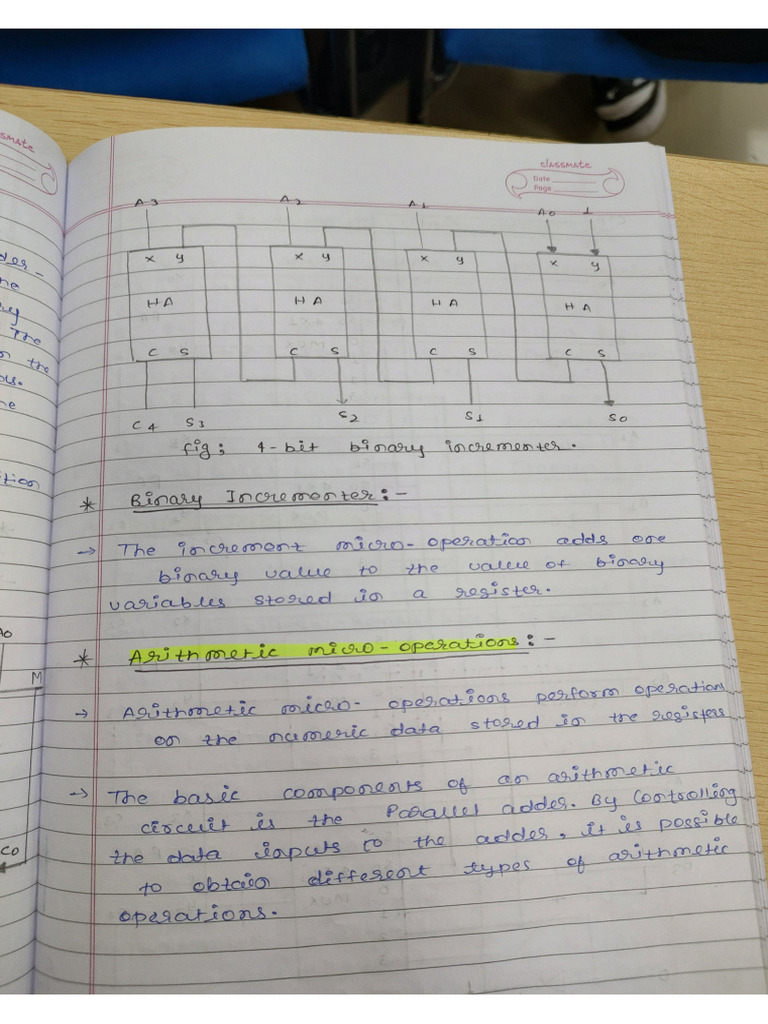 classmate
Date
Page
A3 A2 A1 A0 1
x y x y x y x y
HA HA HA HA
C S C S C S C S
C4 S3 S2 S1 S0
fig: 4-bit binary incrementer.
* Binary Incrementer:-
→ The increment micro-operation adds one
binary value to the value of binary
variables stored in a register.
* Arithmetic micro-operations:-
→ Arithmetic micro-operations perform operation
on the numeric data stored in the registers
→ The basic components of an arithmetic
circuit is the Parallel adder. By Controlling
the data inputs to the adder, it is possible
to obtain different types of arithmetic
operations.
M